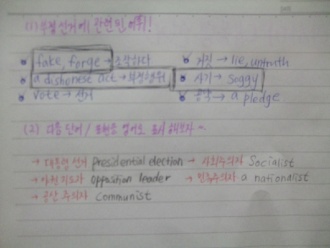 (1) 부정선거에 관련된 어휘!
fake, forge → 조작하다
거짓 → lie, untruth
a dishonest act → 부정행위
사기 →
vote → 선거
공약 → a pledge.
(2) 다음 단어 / 표현을 영어로
→ 대통령 선거 presidential election
→ 사회주의자 Socialist
→ 야권 지도자 opposition leader
→ 민족주의자 a nationalist
→ 공산주의자 communist